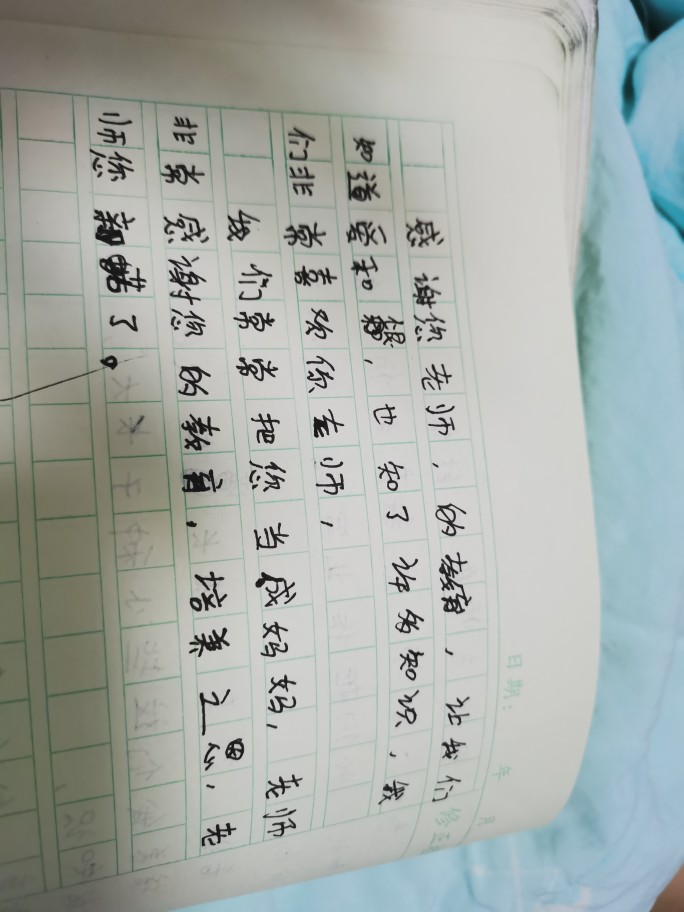 日期: 年 月
感谢您老师，的教育，让我们
知道爱和恨，也知了许多知识，我
们非常喜欢你老师，
我们常常把您当成妈妈，老师
非常感谢您的教育，培养之恩，老
师您辛苦了。